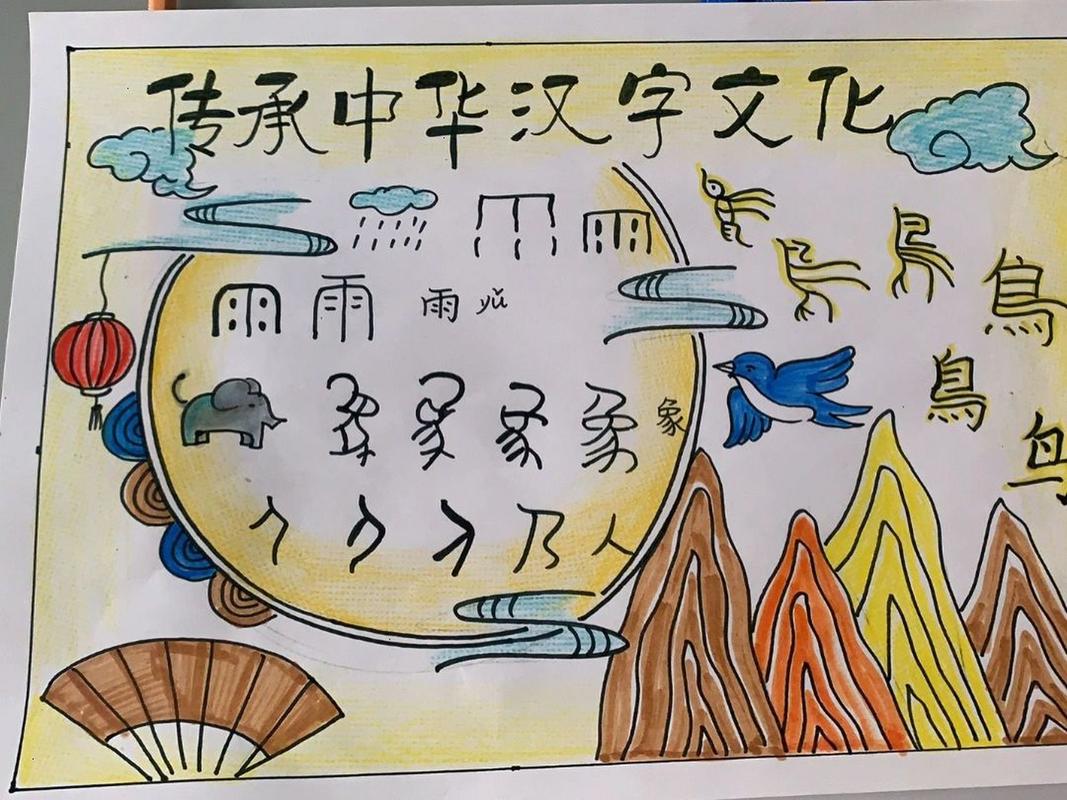 传承中华汉字文化
雨 雨 yǔ
象
人
鳥
鳥
鸟